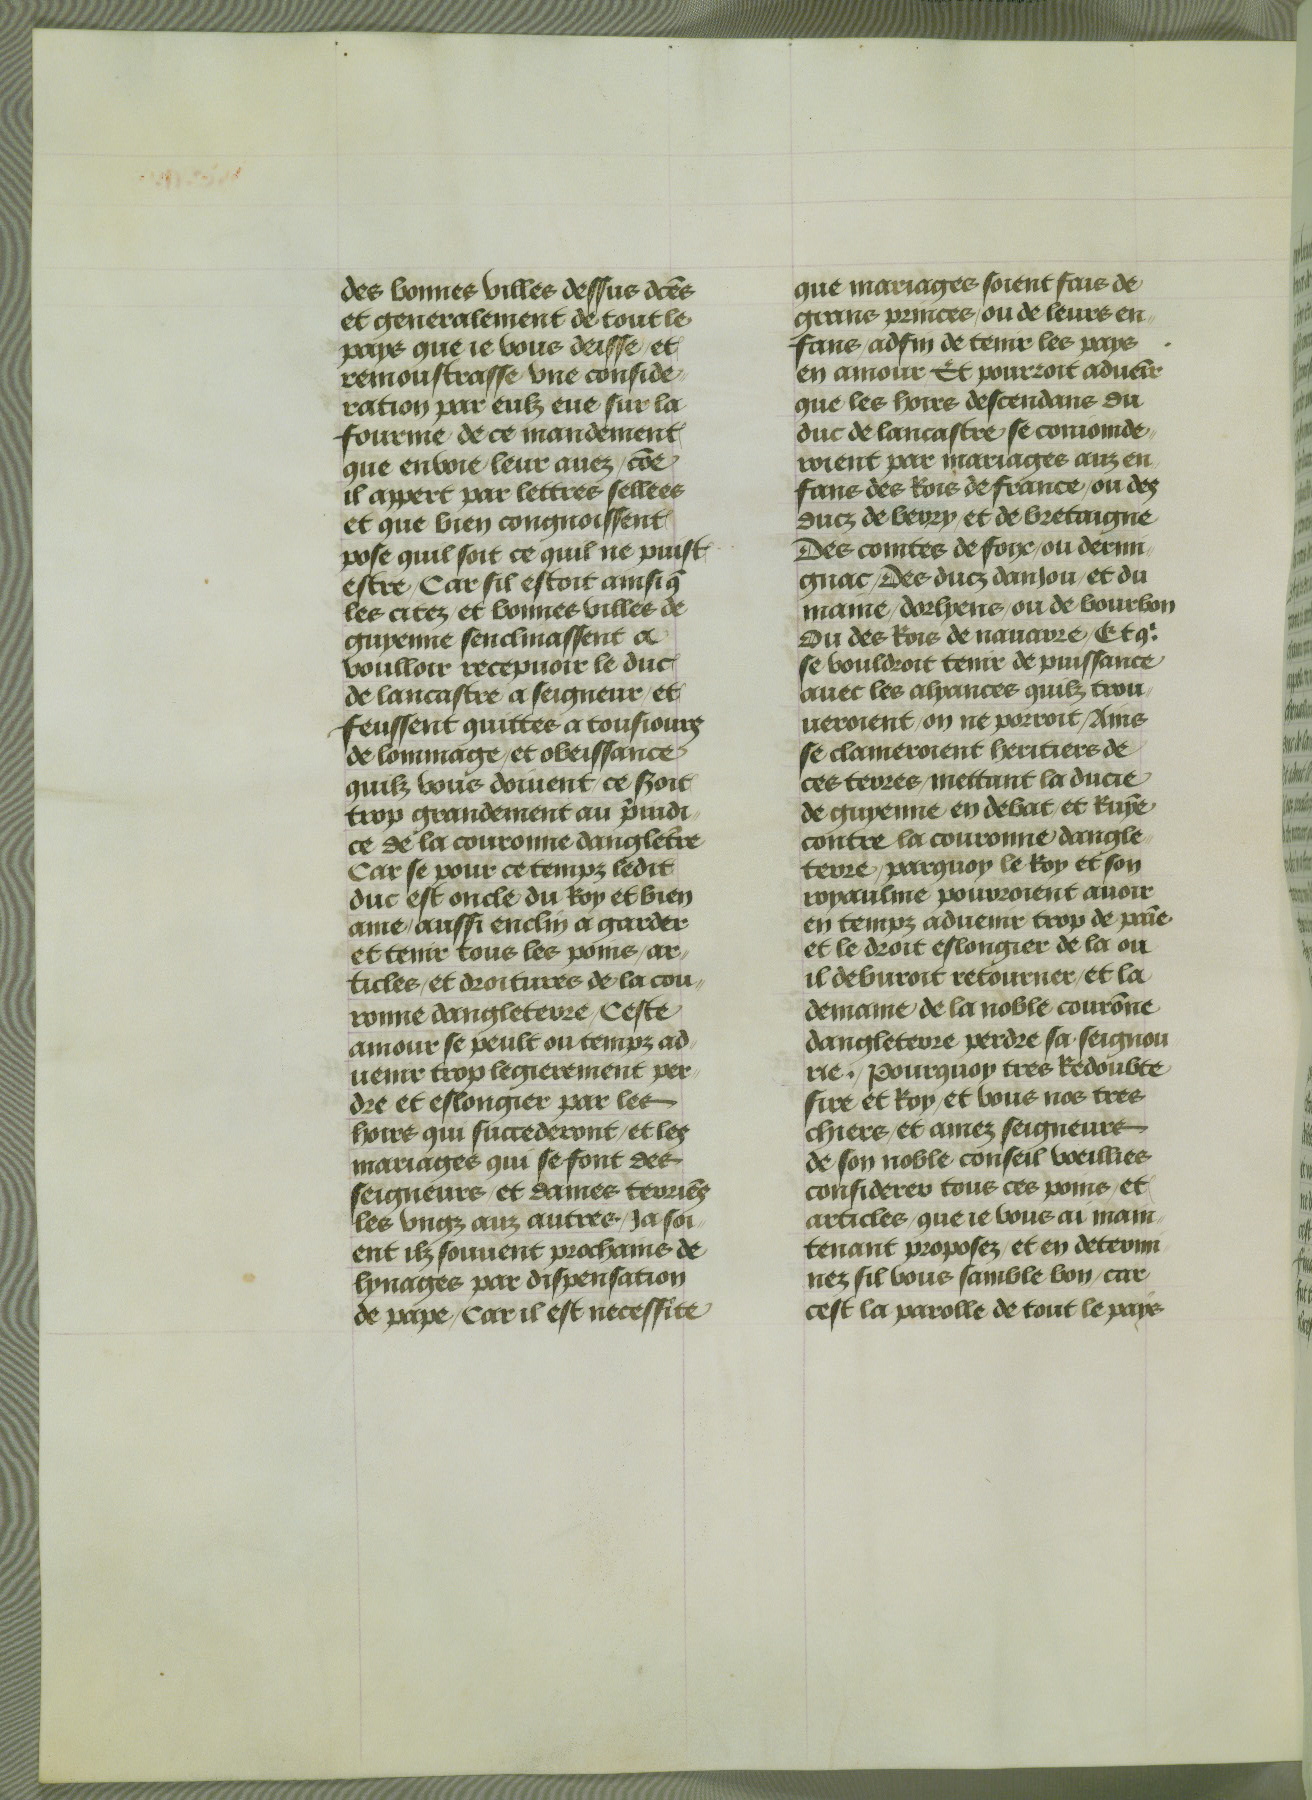 des bonnes villes dessus dc̄es
et generalement de tout le
pays que ie vous deisse / et
remoustrasse vne conside„
ration par eulz eue sur la
fourme de ce mandement
que enuoie leur auez / cōe
il appert par lettres sellees
et que bien congnoissent
pose quil soit ce quil ne puist
estre / Car sil estoit ainsi q̄
les citez et bonnes villes de
guyenne senclinassent a
voulloir recepuoir le duc
de lancastre a seigneur / et
feussent quittes a tousiours
de lommage / et obeissance
quilz vous doiuent / ce seroit
trop grandement au p̄iudi„
ce de la couronne dangletr̄e
Car se pour ce tempz ledit
duc est oncle du Roy et bien
ame / aussi enclin a garder
et tenir tous les poins / ar„
ticles / et droitures de la cou„
ronne dangleterre / Ceste
amour se peult ou tempz ad„
uenir trop legierement per„
dre et eslongier par les
hoirs qui succederont / et les
mariages qui se font des
seigneurs / et dames terriēs
les vngz auz autres / Ja soi„
ent ilz souuent prochains de
lynages par dispensation
de pape / Car il est necessite
que mariages soient fais de
grans princes / ou de leurs en„
fans / adfin de tenir les pays
en amour Et pourroit aduenr̄
que les hoirs descendans du
duc de lancastre se conioinde„
roient par mariages auz en„
fans des Rois de france / ou des
ducz de berry / et de bretaigne
Des comtes de foix / ou dermi„
gnac / Des ducz danjou / et du
maine / dorlyens / ou de bourbon
Ou des Rois de nauarre / Et qi
se vouldroit tenir de puissance
auec les alyances quilz trou„
ueroient / on ne porroit / Ains
se clameroient heritiers de
ces terres / mettant la ducie
de guyenne en debat / et Ruyn̄e
contre la couronne dangle„
terre / parquoy le Roy et son
royaulme pourroient auoir
en tempz aduenir trop de pain̄e
et le droit eslongier de la ou
il deburoit retourner / et la
demaine de la noble courōne
dangleterre perdre sa seignou
rie . / Pourquoy tres Redoubte
sire et Roy / et vous nos tres
chiers / et amez seigneurs
de son noble conseil voeillies
considerer tous ces poins / et
articles / que ie vous ai main„
tenant proposez / et en determi„
nez sil vous samble bon / car
cest la parolle de tout le pays